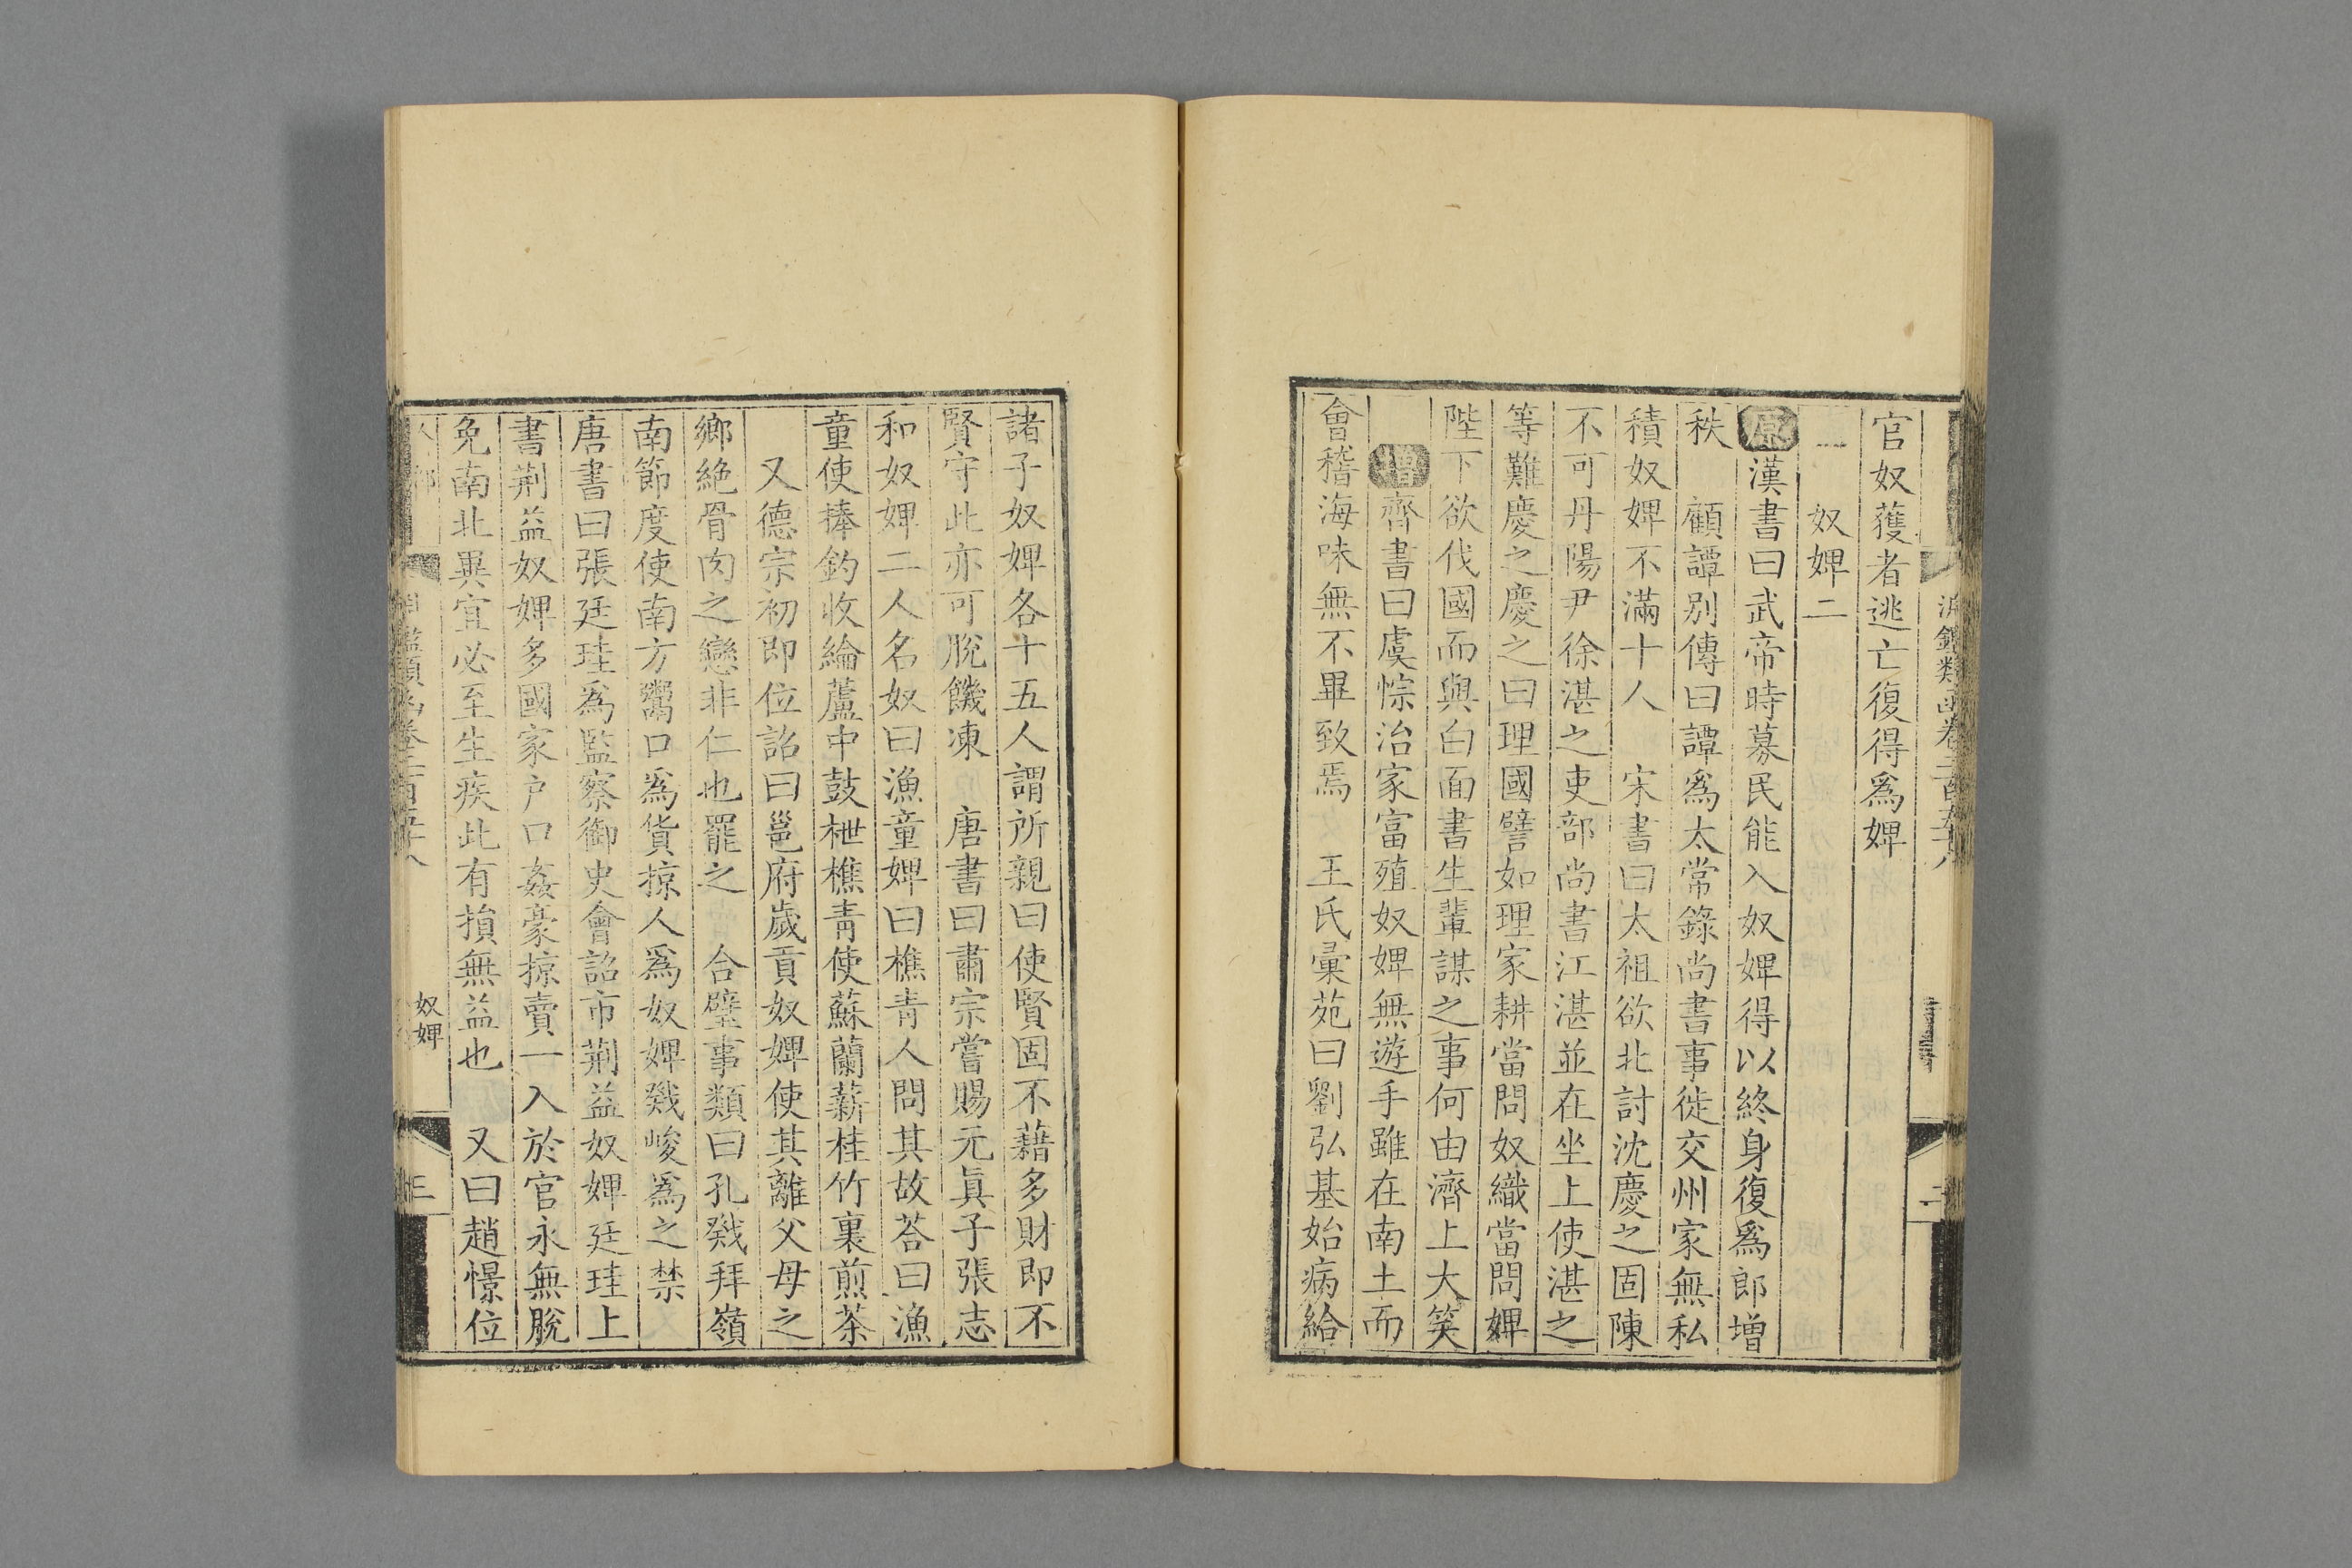 淵鑑類函卷二百五十八
二
官奴獲者逃亡復得爲婢
奴婢二
原漢書曰武帝時募民能入奴婢得以終身復爲郎增
秩　顧譚別傳曰譚爲太常錄尚書事徙交州家無私
積奴婢不滿十人　宋書曰太祖欲北討沈慶之固陳
不可丹陽尹徐湛之吏部尚書江湛並在坐上使湛之
等難慶之慶之曰理國譬如理家耕當問奴織當問婢
陛下欲伐國而與白面書生輩謀之事何由濟上大笑
增齊書曰虞悰治家富殖奴婢無遊手雖在南土而
會稽海味無不畢致焉　王氏彙苑曰劉弘基始病給
諸子奴婢各十五人謂所親曰使賢固不藉多財即不
賢守此亦可脫饑凍　唐書曰肅宗嘗賜元眞子張志
和奴婢二人名奴曰漁童婢曰樵青人問其故荅曰漁
童使捧釣收綸蘆中鼓枻樵青使蘇蘭薪桂竹裏煎茶
又德宗初即位詔曰邕府歲貢奴婢使其離父母之
鄉絶骨肉之戀非仁也罷之　合璧事類曰孔戣拜嶺
南節度使南方鬻口爲貨掠人爲奴婢戣峻爲之禁
唐書曰張廷珪爲監察御史會詔市荆益奴婢廷珪上
書荆益奴婢多國家戸口姦豪掠賣一入於官永無脫
免南北異宜必至生疾此有損無益也　又曰趙憬位
淵鑑類函卷二百五十八
奴婢
三